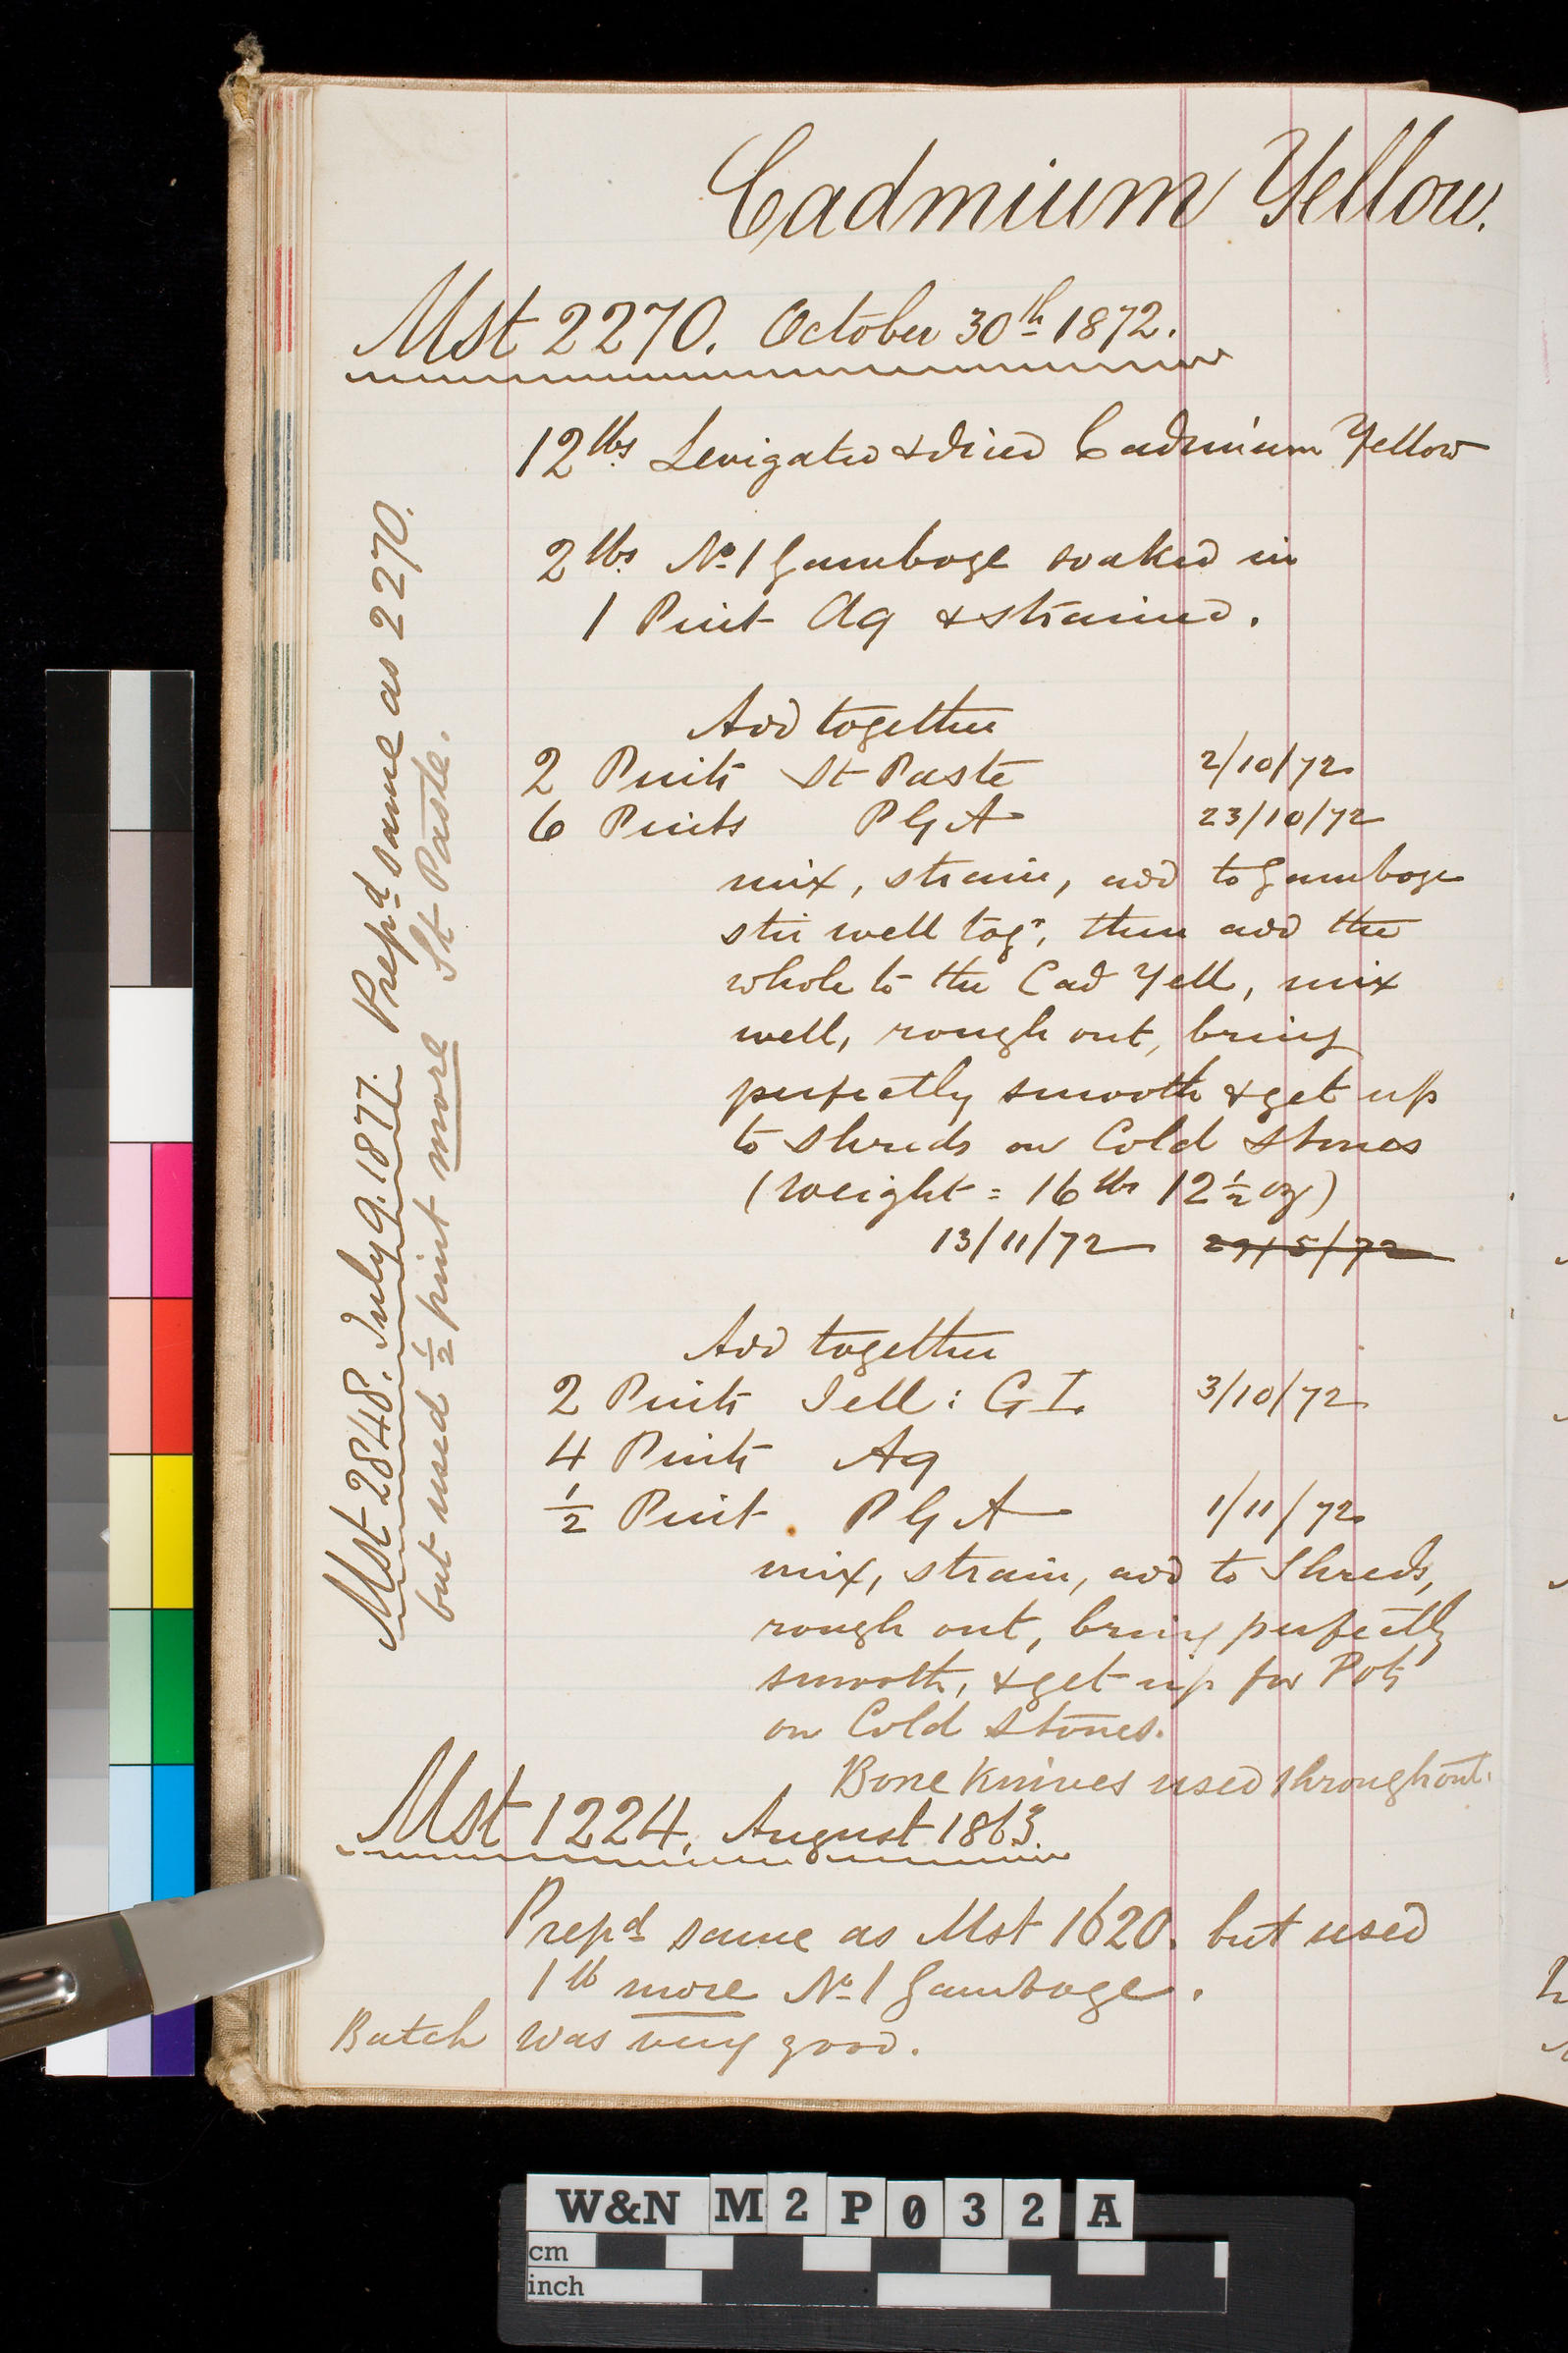 Cadmium Yellow.
Mst 2270. October 30th 1872.
12 lbs Levigated & dried Cadmium Yellow
2 lbs No 1 Gamboge soaked in
1 Pint Aq & strained.
Add together
2 Pints St Paste 2/10/72
6 Pints P G A 23/10/72
mix, strain, add to Gamboge
stir well togr, then add the
whole to the Cad Yell, mix
well, rough out, bring
perfectly smooth & get up
to Shreds on Cold Stones
(Weight = 16 lbs 12 ½ oz)
13/11/72 29/5/72
Add together
2 Pints Jell: G I. 3/10/72
4 Pints Aq
½ Pint P G A 1/11/72
mix, strain, add to Shreds,
rough out, bring perfectly
smooth, & get up for Pots
on Cold Stones.
Bone Knives used throughout.
Mst 1224, August 1863.
Prepd same as Mst 1620. but used
1 lb more No 1 Gamboge.
Batch was very good.
Mst 2848. July 9. 1877. Prepd same as 2270.
but used ½ pint more St Paste.
W&N M2P032A
cm
inch